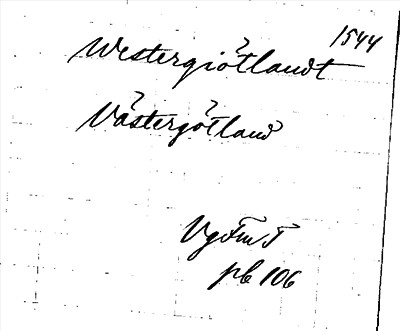 1544
Westergiötlandt
Västergötland
VgFmT
pb 106